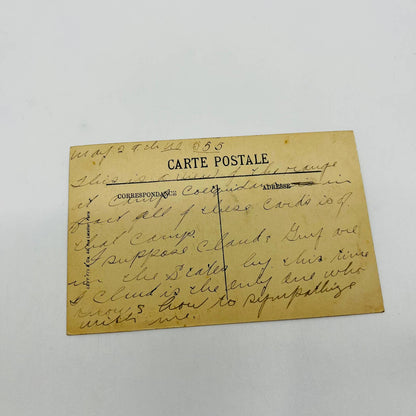 May 29th
CARTE POSTALE
This is a view of the range
CORRESPONDANCE ADRESSE
at Camp Coetquidan in
fact all of these cards is of
that camp.
I suppose Claud & Guy are
in the States by this time
Claud is the only one who
knows how to sympathize
with me.